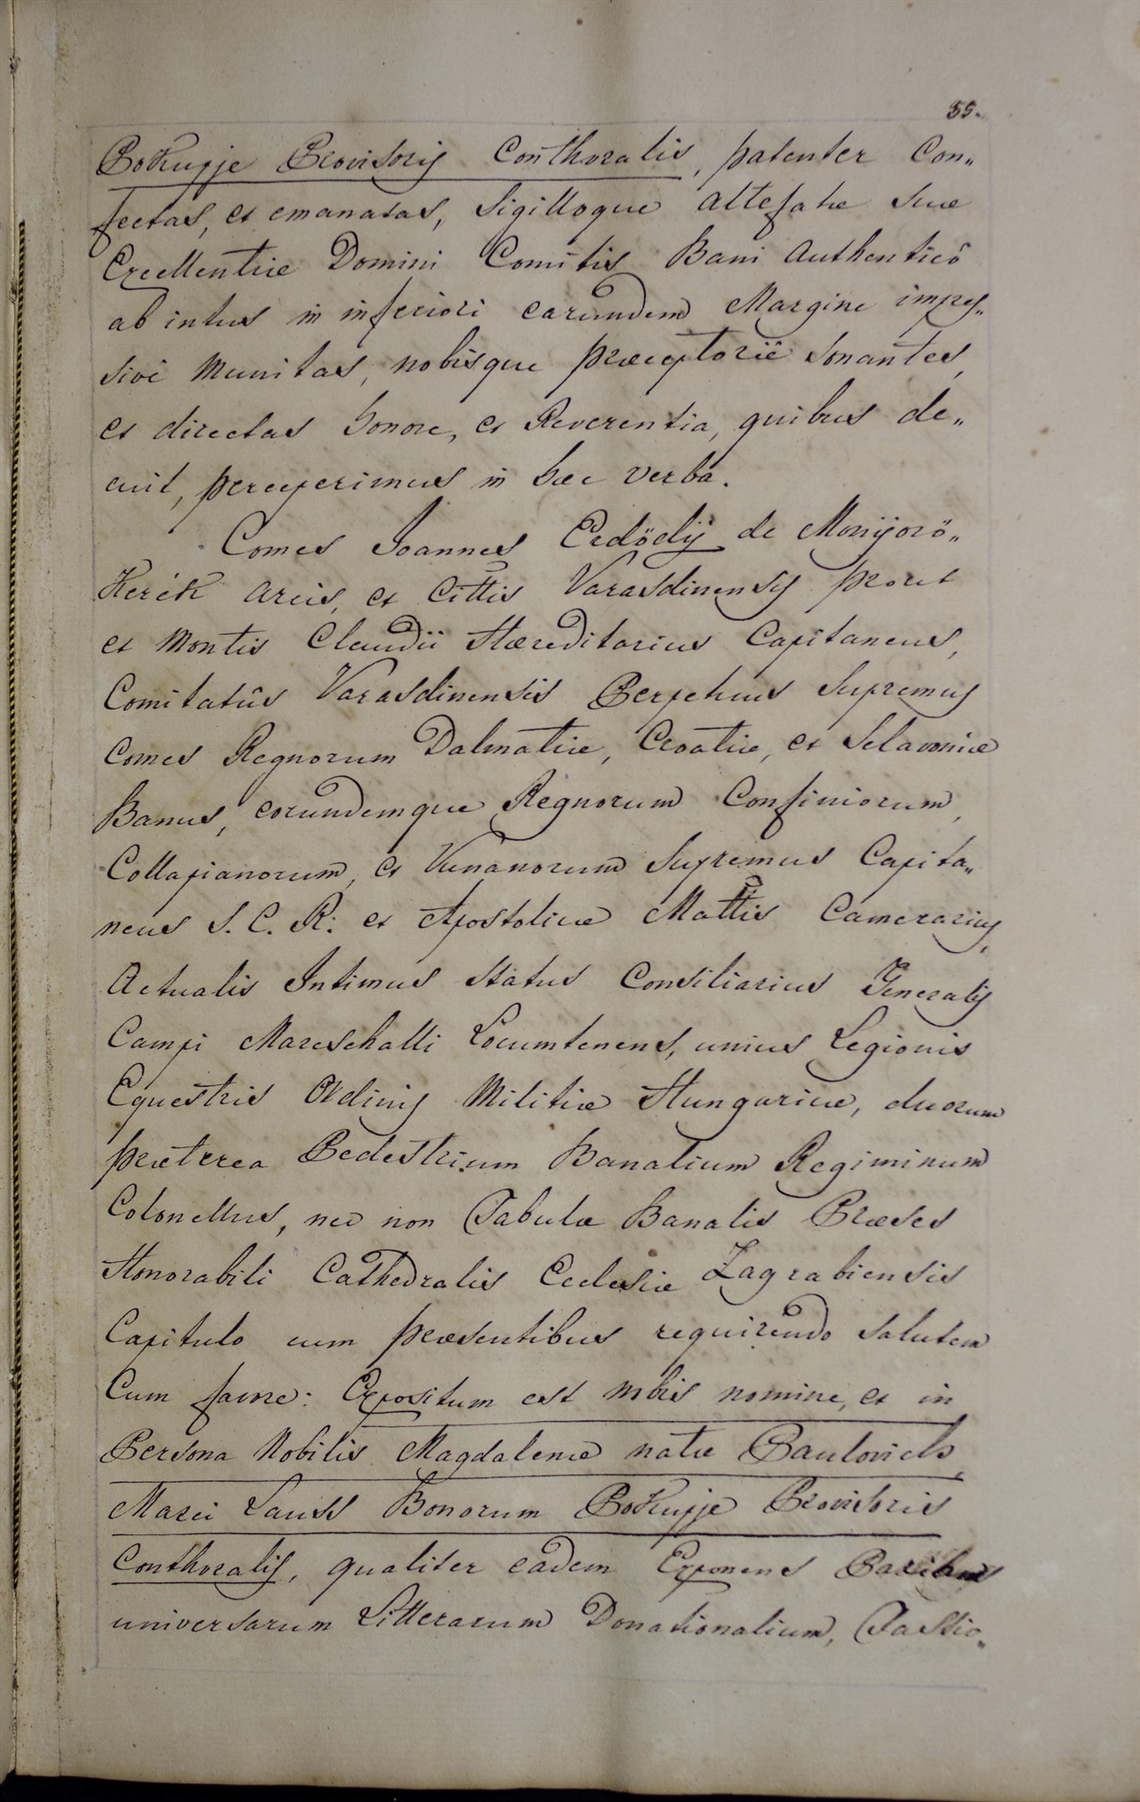 39.
Pokupje Provisoris Conthoralis, patenter Con„
fectas, et emanatas, Sigilloque altefatæ Suæ
Excellentiæ Domini Comitis Bani Authenticô
ab intus in inferiori earundem Margine impres„
sivè munitas, nobisque præceptoriè sonantes,
et directas honore, et Reverentia, quibus de„
cuit, perceperimus in hæc verba.
Comes Joannes Erdödÿ de Monÿorö„
Kerék Arcis, et Cittis Varasdinensis prout
et Montis Claudii Hæreditarius Capitaneus,
Comitatûs Varasdinensis Perpetuus Supremus
Comes Regnorum Dalmatiæ, Croatiæ, et Sclavoniæ
Banus, eorundemque Regnorum Confiniorum,
Collapianorum, et Vunanorum Supremus Capita„
neus S. C. R: et Apostolicæ Mattis Camerarius,
Actualis Intimus Status Consiliarius Generalis
Campi Mareschalli Locumtenens, unius Legionis
Equestris Ordinis Militiæ Hungaricæ, duorum
præterea Pedestrium Banalium Regiminum
Colonellus, nec non Tabulæ Banalis Præses
Honorabili Cathedralis Ecclesiæ Zagrabiensis
Capitulo cum præsentibus requirendo salutem
Cum favore: Expositum est nobis nomine, et in
Persona Nobilis Magdalenæ natæ Paulovich,
Marci Lauss Bonorum Pokupje Provisoris
Conthoralis, qualiter eadem Exponens Paribus
universarum Litterarum Donationalium, Fassio„